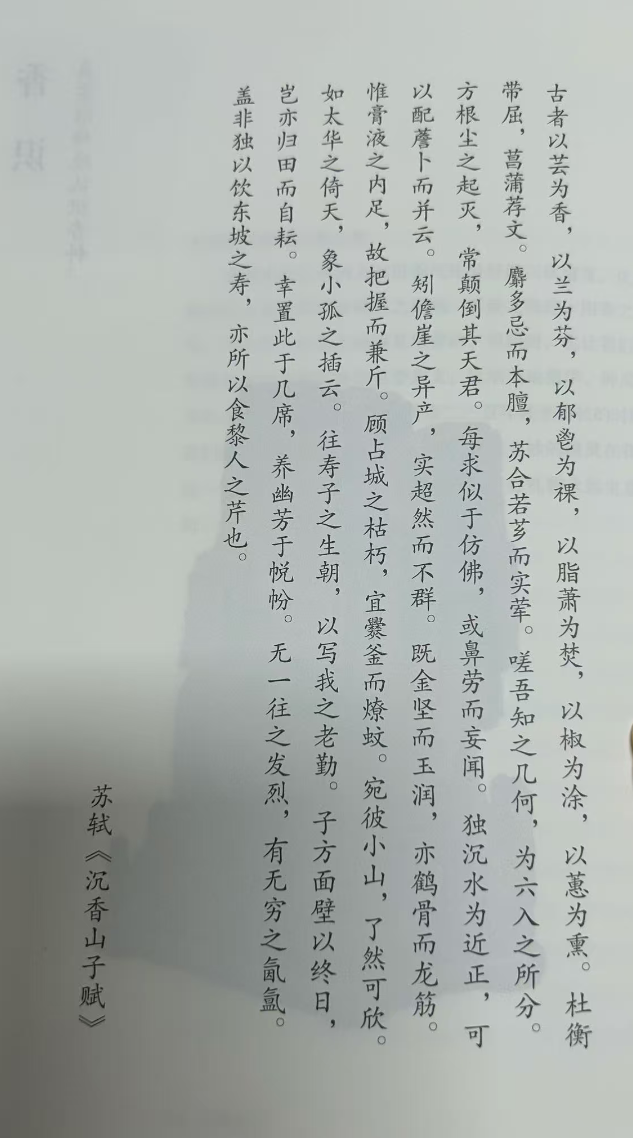 古者以芸为香，以兰为芬，以郁鬯为祼，以脂萧为焚，以椒为涂，以蕙为熏。杜衡
带屈，菖蒲荐文。麝多忌而本膻，苏合若芗而实荤。嗟吾知之几何，为六入之所分。
方根尘之起灭，常颠倒其天君。每求似于仿佛，或鼻劳而妄闻。独沉水为近正，可
以配薝卜而并云。矧儋崖之异产，实超然而不群。既金坚而玉润，亦鹤骨而龙筋。
惟膏液之内足，故把握而兼斤。顾占城之枯朽，宜爨釜而燎蚊。宛彼小山，了然可欣。
如太华之倚天，象小孤之插云。往寿子之生朝，以写我之老勤。子方面壁以终日，
岂亦归田而自耘。幸置此于几席，养幽芳于帨帉。无一往之发烈，有无穷之氤氲。
盖非独以饮东坡之寿，亦所以食黎人之芹也。
苏轼《沉香山子赋》
香识